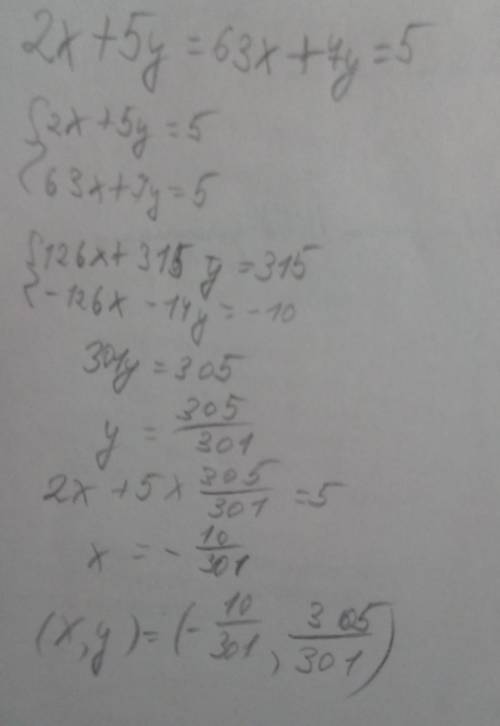 2x+5y=63x+7y=5
{2x+5y=5
63x+7y=5
{126x+315y=315
-126x-14y=-10
301y=305
y=305/301
2x+5×305/301=5
x=-10/301
(x,y)=(-10/301, 305/301)